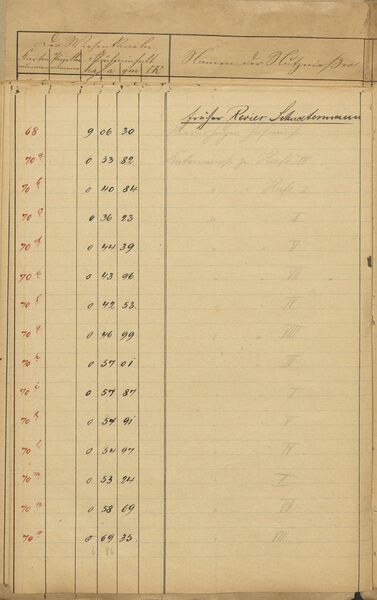 Der Wiesen Parzelle
Namen der Nutznießer
Karten Parzellen Flächeninhalt
ha a qm
früher Revier Schustermann
68 9 06 30
70 a 0 53 82 Hufe III
70 b 0 40 84 " Hufe I
70 c 0 36 23 " II
70 d 0 44 39 " V
70 e 0 43 96 " VII
70 f 0 42 53 " IV
70 g 0 46 99 " VIII
70 h 0 57 01 " II
70 i 0 57 87 " I
70 k 0 54 91 " V
70 l 0 54 97 " IV
70 m 0 53 24 " II
70 n 0 58 69 " VII
70 o 0 69 35 " VIII